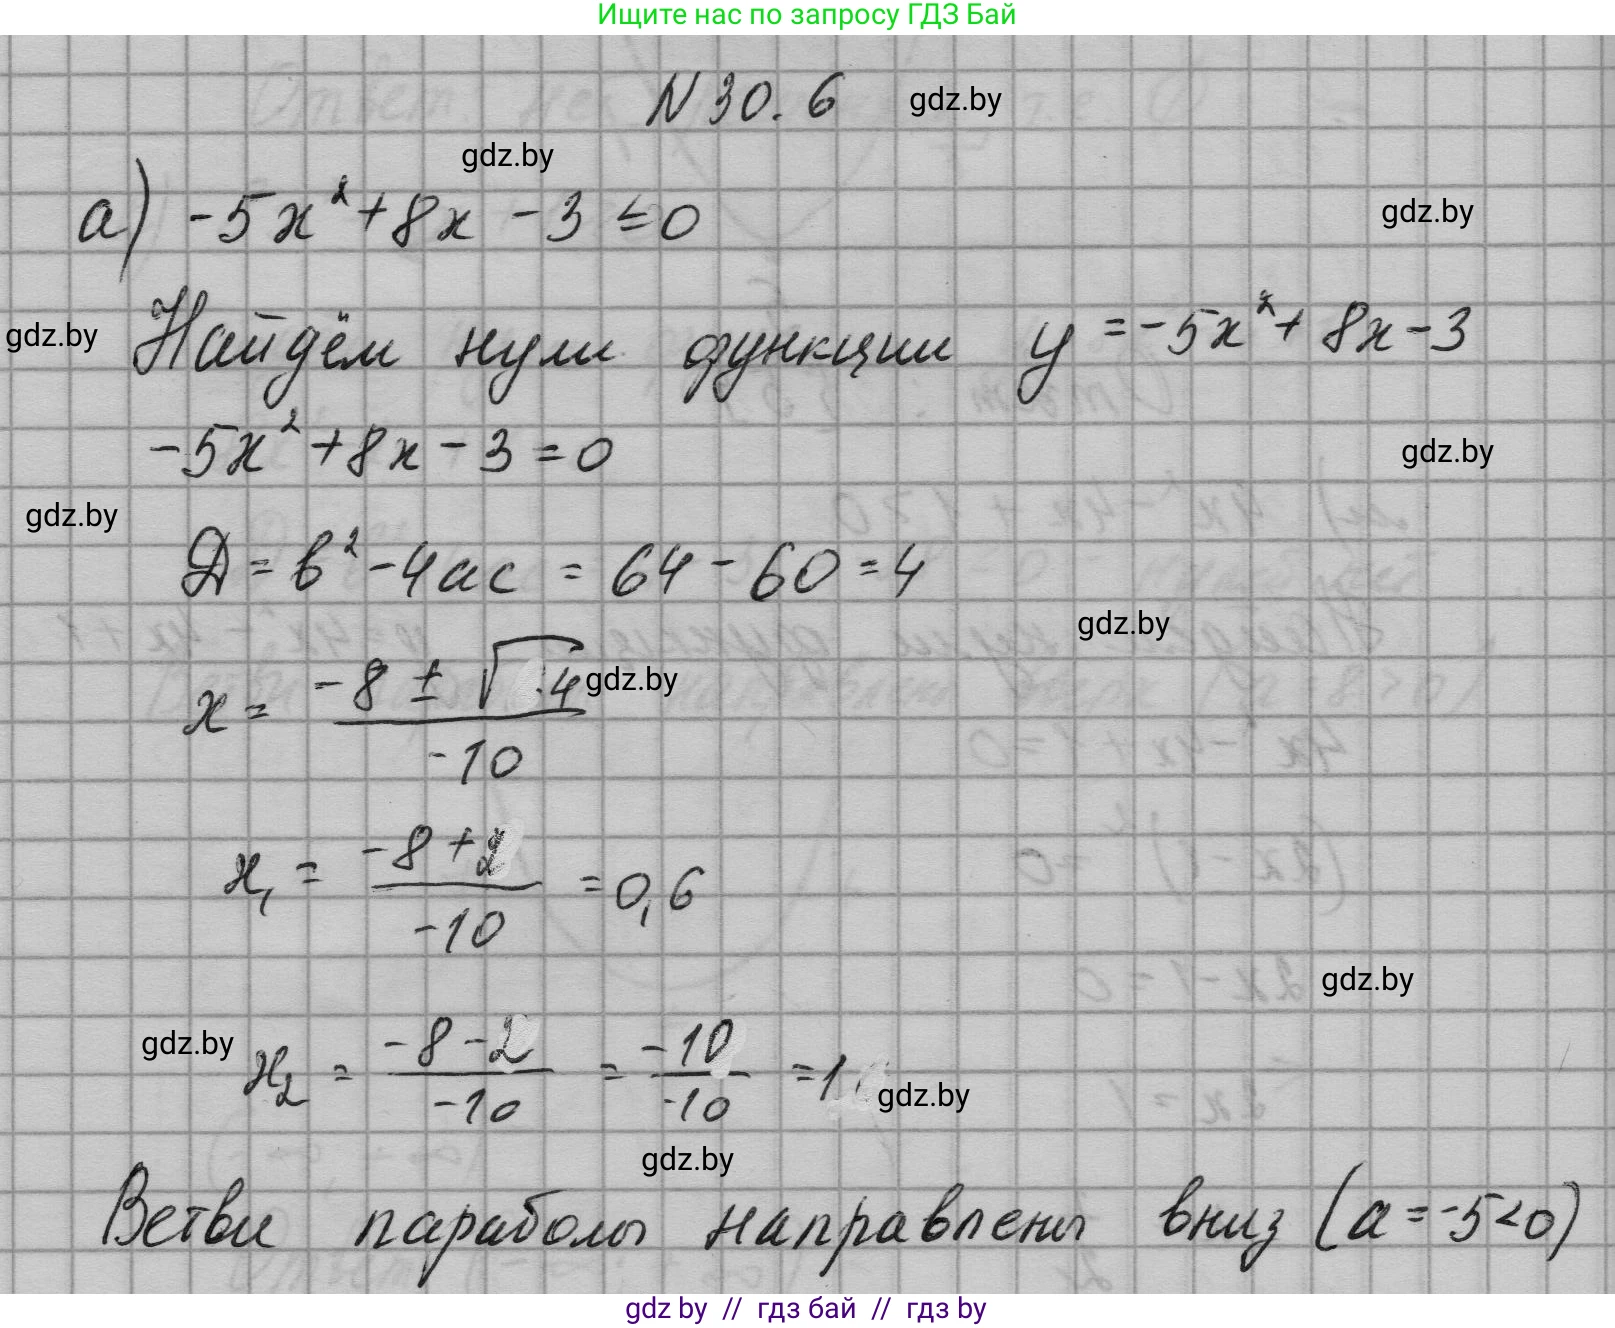 Ищите нас по запросу ГДЗ Бай
N 30. 6 gdz.by
gdz.by
а) -5x² + 8x - 3 ≤ 0 gdz.by
gdz.by Найдём нули функции y = -5x² + 8x - 3
-5x² + 8x - 3 = 0 gdz.by
gdz.by
Д = b² - 4ac = 64 - 60 = 4
gdz.by
x = (-8 ± √4) / -10 gdz.by
x₁ = (-8 + 2) / -10 = 0,6
gdz.by
gdz.by x₂ = (-8 - 2) / -10 = -10 / -10 = 1 gdz.by
gdz.by
Ветви параболы направлены вниз (a = -5 < 0)
gdz by // гдз бай // гдз by